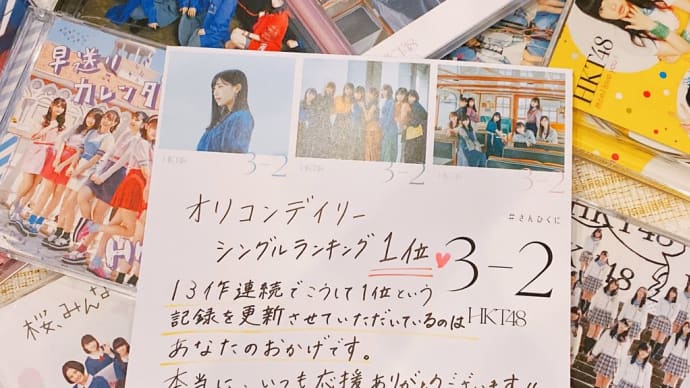 早送り
カレンダ
HKT48
HKT48
3-2
HKT48
3-2
3-2
オリコンデイリー
シングルランキング 1位
#さんひくに
3-2
HKT48
13作連続でこうして1位という
記録を更新させていただいているのは
あなたのおかげです。
本当に、いつも応援ありがとうございます!!
桜、みんな
HKT48